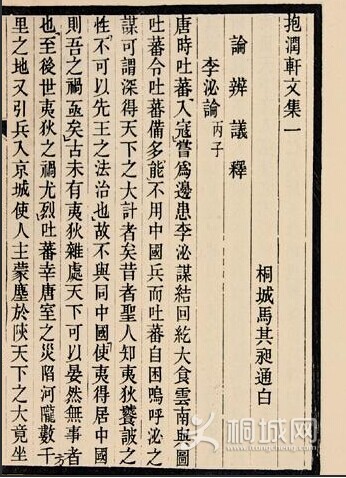 抱潤軒文集一
桐城馬其昶通白
論辨議釋
李泌論丙子
唐時吐蕃入寇嘗爲邊患李泌謀結回紇大食雲南與圖
吐蕃令吐蕃備多能不用中國兵而吐蕃自困嗚呼泌之
謀可謂深得天下之大計者矣昔者聖人知夷狄饕詖之
性不可以先王之法治也故不與同中國使夷得居中國
則吾之禍亟矣古未有夷狄雜處天下可以晏然無事者
也至後世夷狄之禍尤烈吐蕃幸唐室之災陷河隴數千
里之地又引兵入京城使人主蒙塵於陜天下之大竟坐
方
桐城网
www.tongcheng.com